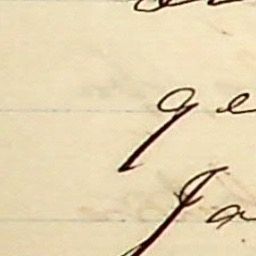 ge
Ja